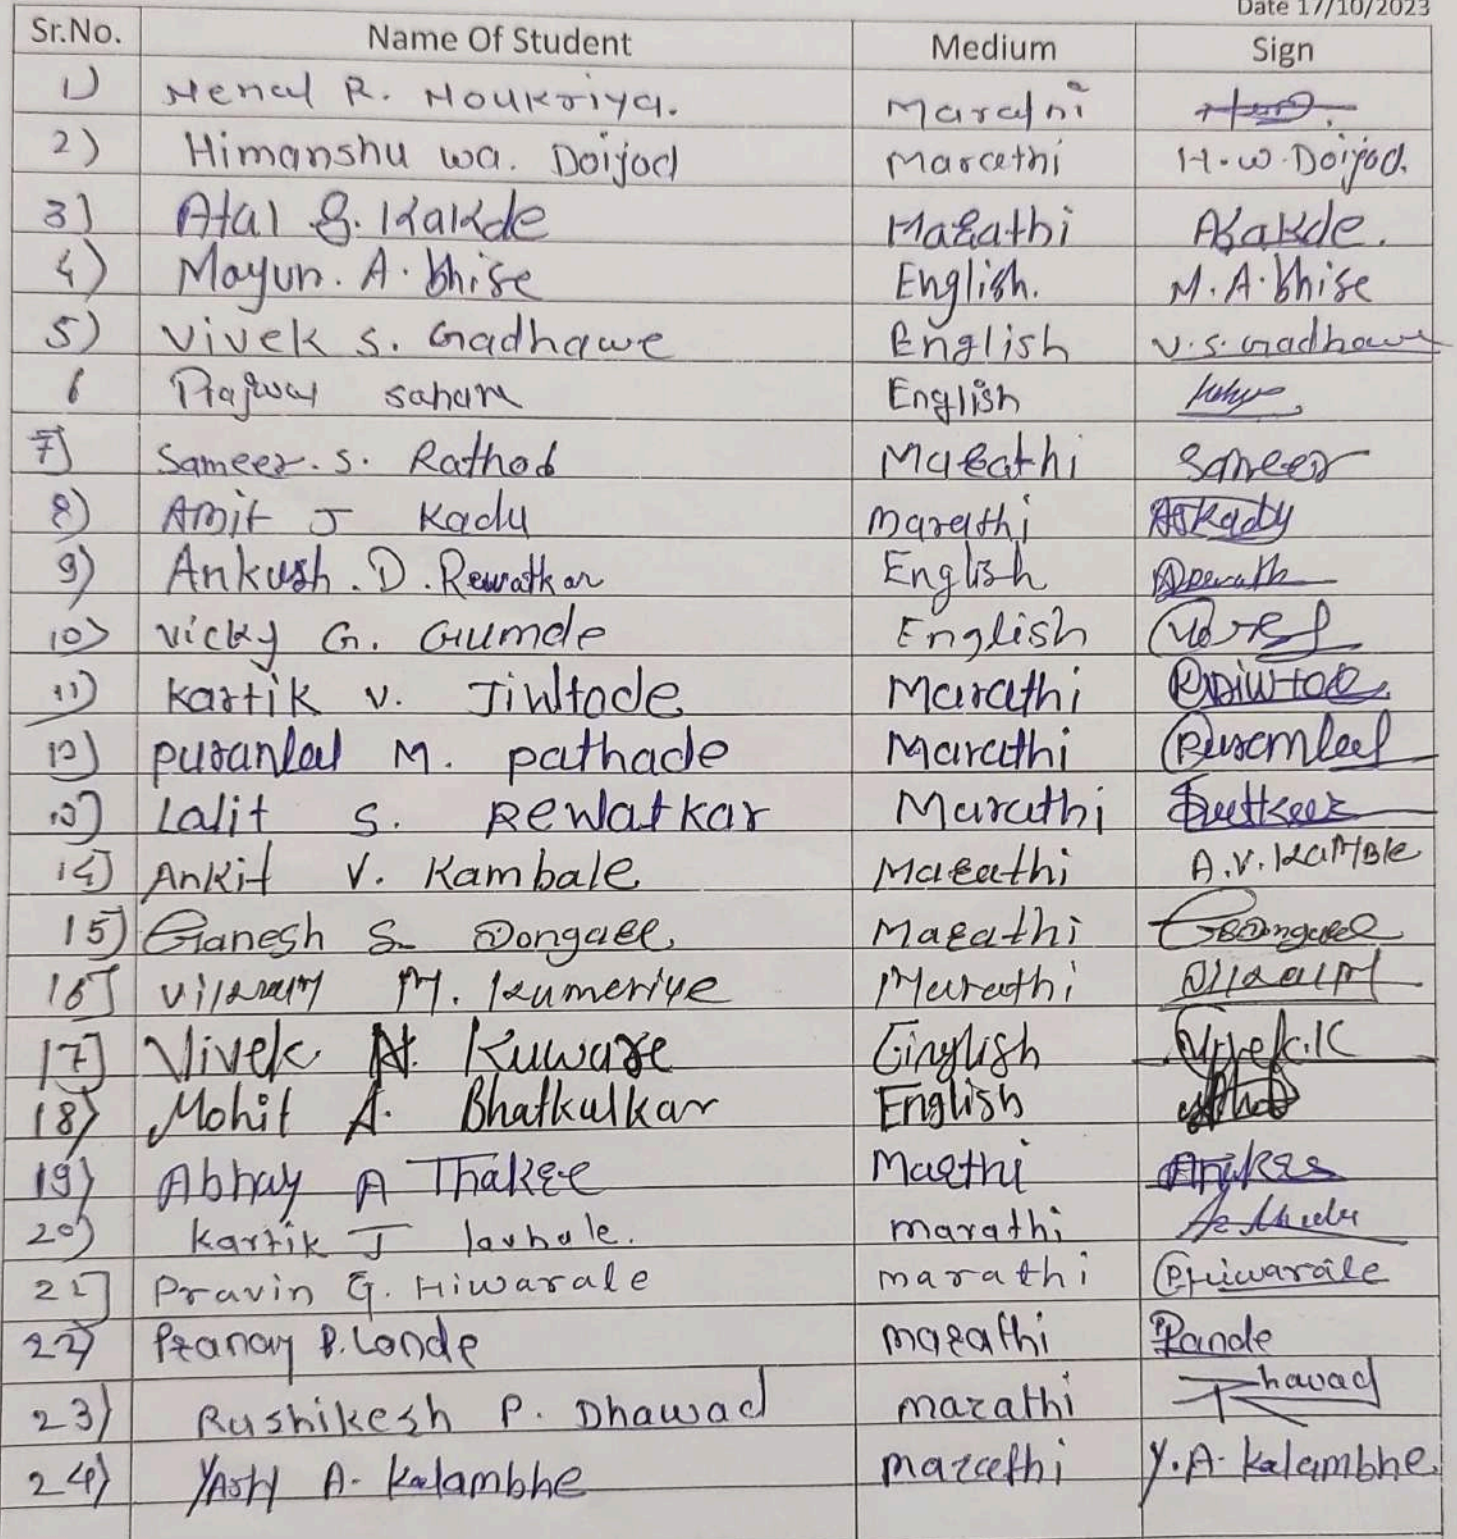 Date 17/10/2023
Sr.No. Name Of Student Medium Sign
1) Henal R. Noukriya. Marathi
2) Himanshu wa. Doijod Marathi H.W.Doijod.
3) Atal S. Kakde Marathi Akakde.
4) Mayur. A. bhise English. M.A.bhise
5) Vivek S. Gadhawe English V.S.Gadhawe
6 Prajwal sahare English
7] Sameer. S. Rathod Marathi Sameer
8) Amit J Kadu Marathi AJKadu
9) Ankush. D. Rewatkar English
10) Vicky G. Gumde English
11) Kartik V. Jiwtode Marathi
12) puranlal M. pathade Marathi Puranlal
13) Lalit S. Rewatkar Marathi
14) Ankit V. Kambale Marathi A.V.KAMBle
15) Ganesh S. Dongare Marathi GSDongare
16] Vikram M. Kumeriye Marathi Vikram
17] Vivek N. Kuware English Vivek.K
18) Mohit A. Bhatkulkar English
19) Abhay A Thakre Marthi
20) Kartik J lavhale. Marathi
21] Pravin G. Hiwarale marathi PHiwarale
22) Pranay P. Londe marathi
23) Rushikesh P. Dhawad marathi
24) YAsh A. Kalambhe marathi Y.A. Kalambhe